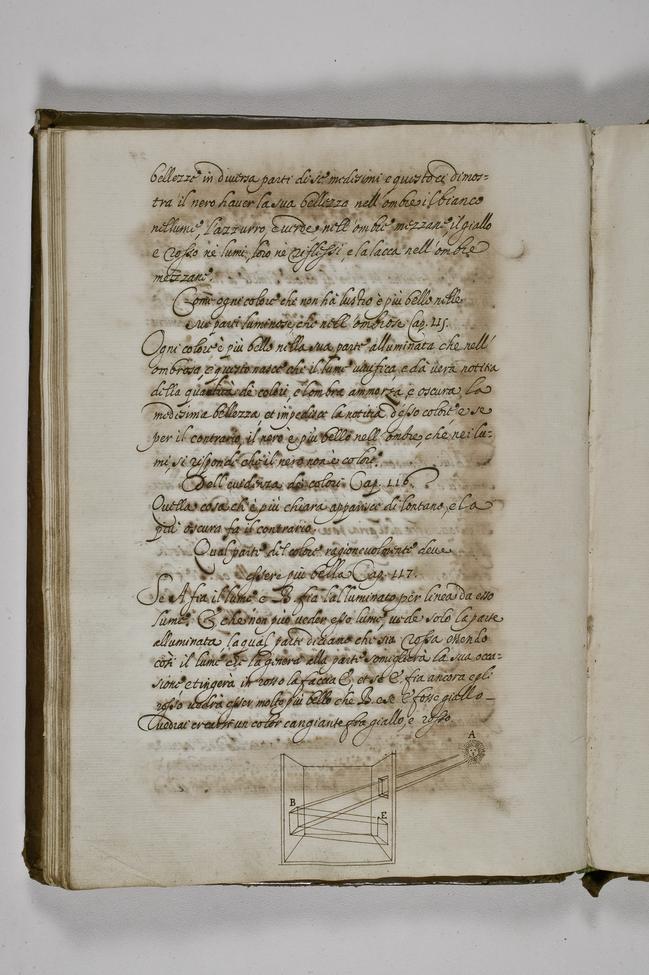 bellezze in diversa parti di se medesimi e questo ci dimos=
tra il nero haver la sua bellezza nell'ombre il bianco
nel lume, l'azzurro, e verde nell'ombre mezzane, il giallo
e rosso ne lumi, l'oro ne riflessi, e la lacca nell'ombre
mezzane.
Come ogni colore che non ha lustro è più bello nelle
sue parti luminose, che nell'ombrose Cap. 115.
Ogni colore è più bello nella sua parte alluminata che nell'
ombrosa, e questo nasce che il lume vivifica e da vera notitia
della qualità de colori, e l'ombra ammorza, e oscura la
medesima bellezza et impedisce la notitia d'esso colore e se
per il contrario il nero è più bello nell'ombre che nei lu=
mi, si risponde che il nero non è colore.
Dell'evidenza de colori. Cap. 116.
Quella cosa ch'è più chiara apparisce di lontano, e la
più oscura fa il contrario.
Qual parte del colore ragionevolmente deve
essere più bella Cap. 117.
Se A fia il lume e B. fia l'alluminato per linea da esso
lume. E. che non può veder esso lume, vede solo la parte
alluminata, la qual parte diciamo che sia rossa essendo
così il lume che la genera alla parte somiglierà la sua occa=
sione e tingerà in rosso la faccia E. et se E fia ancora egli
rosso vedrà esser molto più bello che B. e se E fosse giallo
vedrai crearsi un color cangiante fra giallo, e rosso.
A
B
E